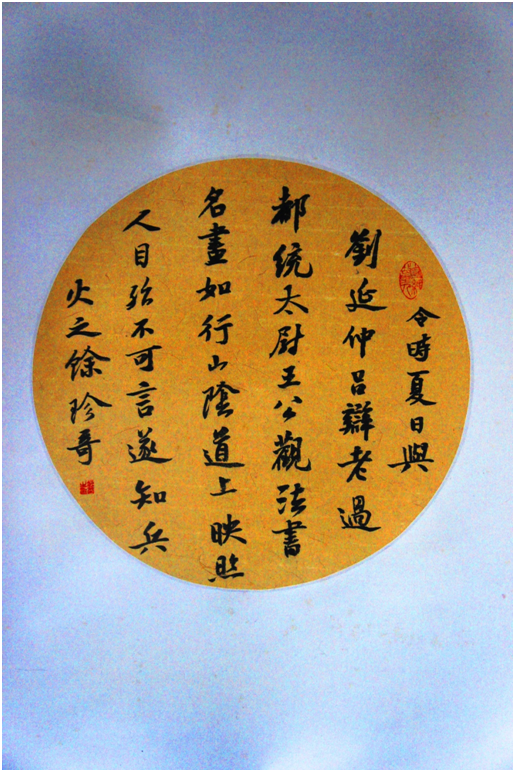 令時夏日與
劉延仲呂辯老過
都統太尉王公觀法書
名畫如行山陰道上映照
人目殆不可言遂知兵
火之餘珍哥